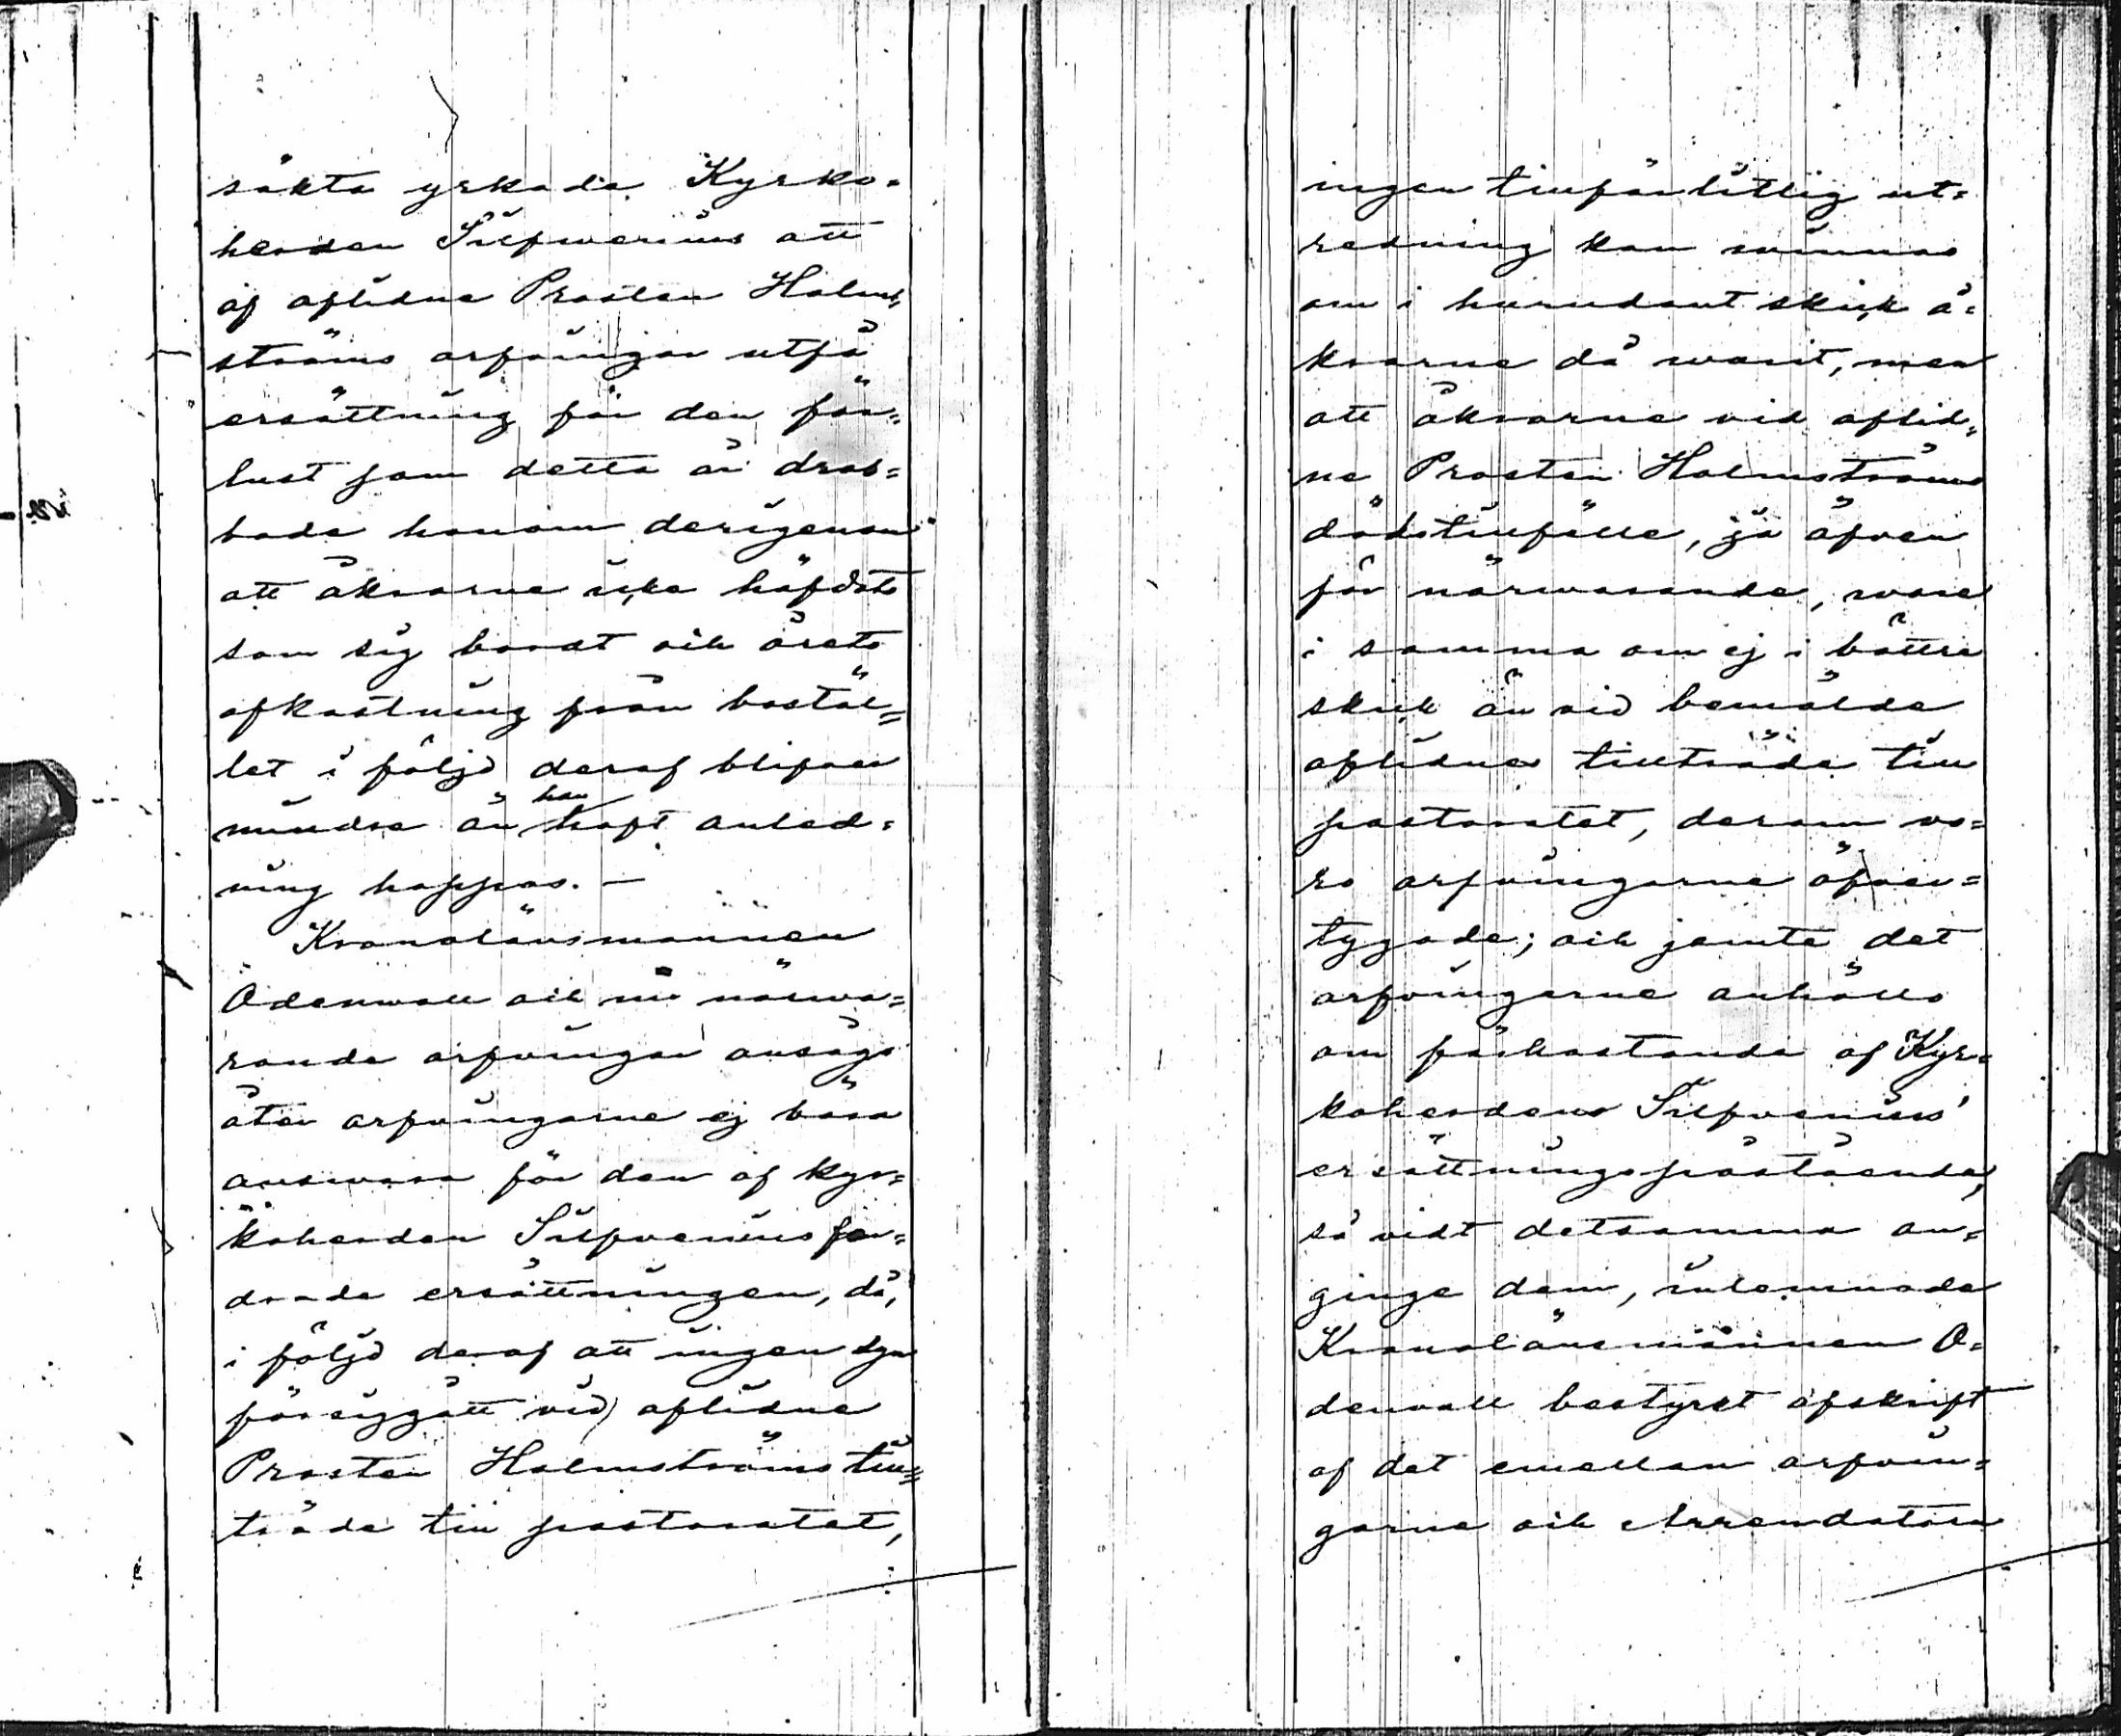 sökta yrkade Kyrko=
herden Silfwenius att
af aflidne Prosten Holm=
ströms arfvingar utfå
ersättning för den för=
lust som detta år drab=
bade honom derigenom
att åkrarne icke häfdats
som sig bordt och årets
afkastning från bostäl=
let i följd deraf blifvit
mindre än han haft anled=
ning hoppas. —
Kronolänsmannen
Ödenwall och nu närva=
rande arfvingar ansågo
åter arfvingarne ej böra
answara för den af kyr=
koherden Silfvenius for=
drade ersättningen, då,
i följd deraf att ingen syn
föreggått vid aflidne
Prosten Holmströms till=
träde till pastoratet,
ingen tillförlitlig ut=
redning kan vinnas
om i hurudant skick å=
krarne då warit, men
att åkrarne vid aflid=
ne Prosten Holmströms
dödstillfälle, så äfven
för närwarande, wore
i samma om ej i bättre
skick än vid bemälde
aflidnes tillträde till
pastoratet, derom vo=
ro arfvingarne öfver=
tygade; och jemte det
arfvingarne anhöllo
om förkastande af Kyr=
koherdens Silfvenius'
ersättningspåstående,
så vidt detsamma an=
ginge dem, inlemnade
Kronolänsmannen Ö=
denvall bestyrkt afskrift
af det emellan arfvin=
garne och Arrendatorn